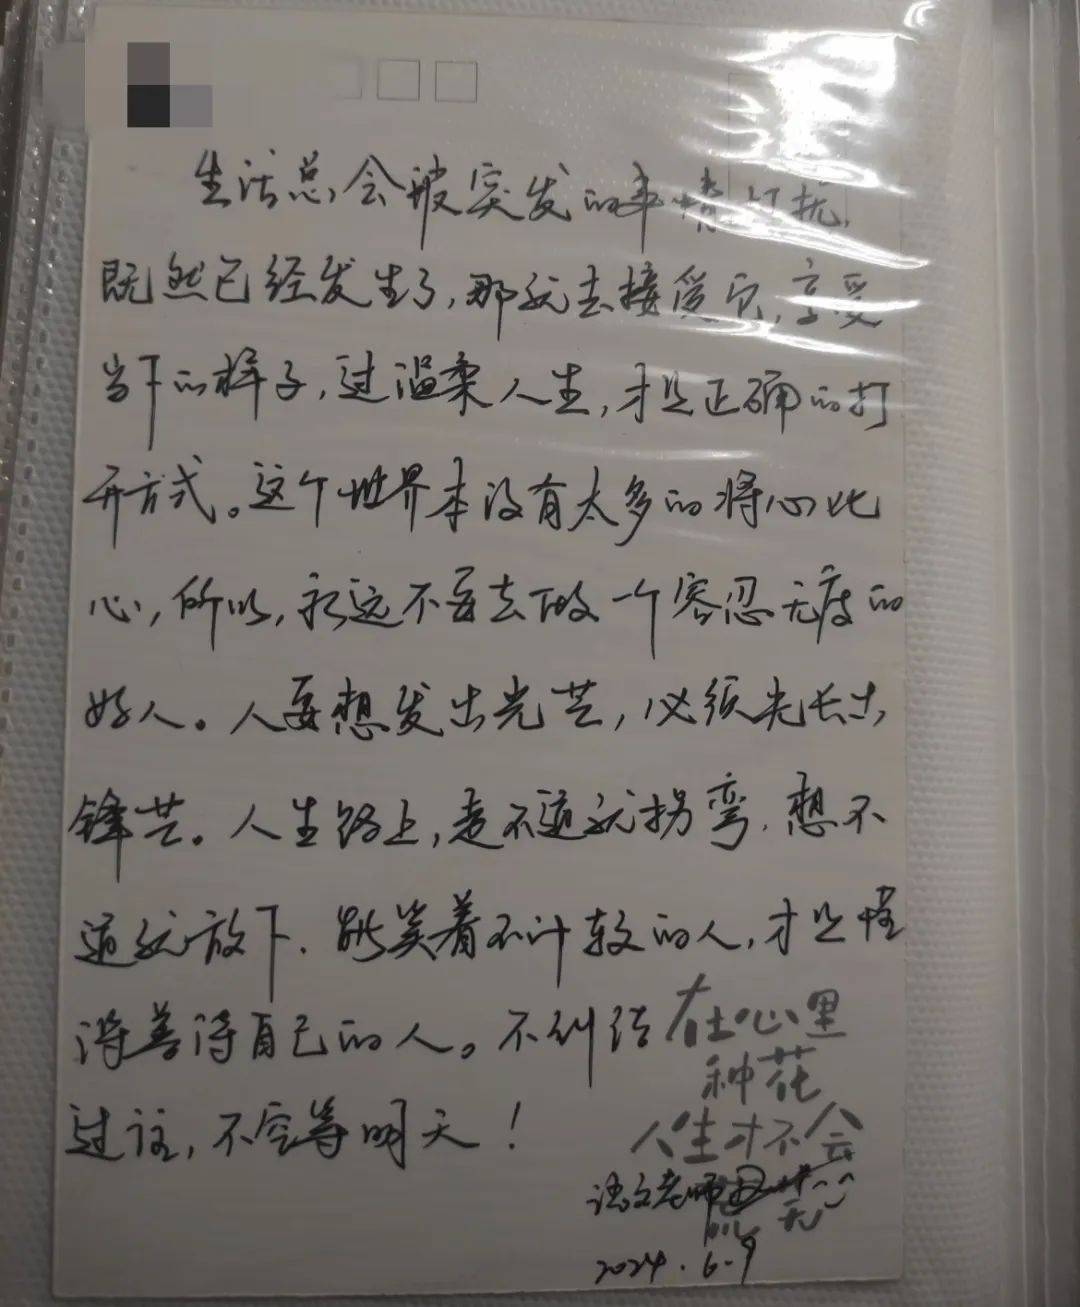 生活总会被突发的事情打扰,
既然已经发生了,那就去接受它,享受
当下的样子,过温柔人生,才是正确的打
开方式。这个世界本没有太多的将心比
心,所以,永远不要去做一个容忍无度的
好人。人要想发出光芒,必须先长出
锋芒。人生路上,走不通就拐弯,想不
通就放下.能笑着不计较的人,才是懂
得善待自己的人。不纠结
过往,不空等明天!
在心里
种花
人生才不会
荒芜
语文老师
2024.6.9